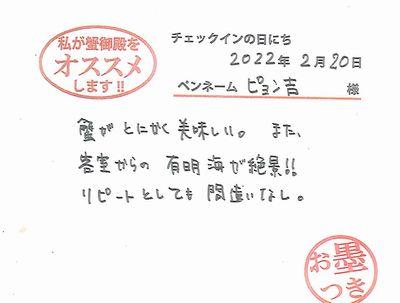 私が蟹御殿を
オススメ
します!!
チェックインの日にち
2022年 2月20日
ペンネーム ピョン吉 様
蟹がとにかく美味しい。 また、
客室からの 有明海が絶景!!
リピートとしても間違いなし。
お墨
つき